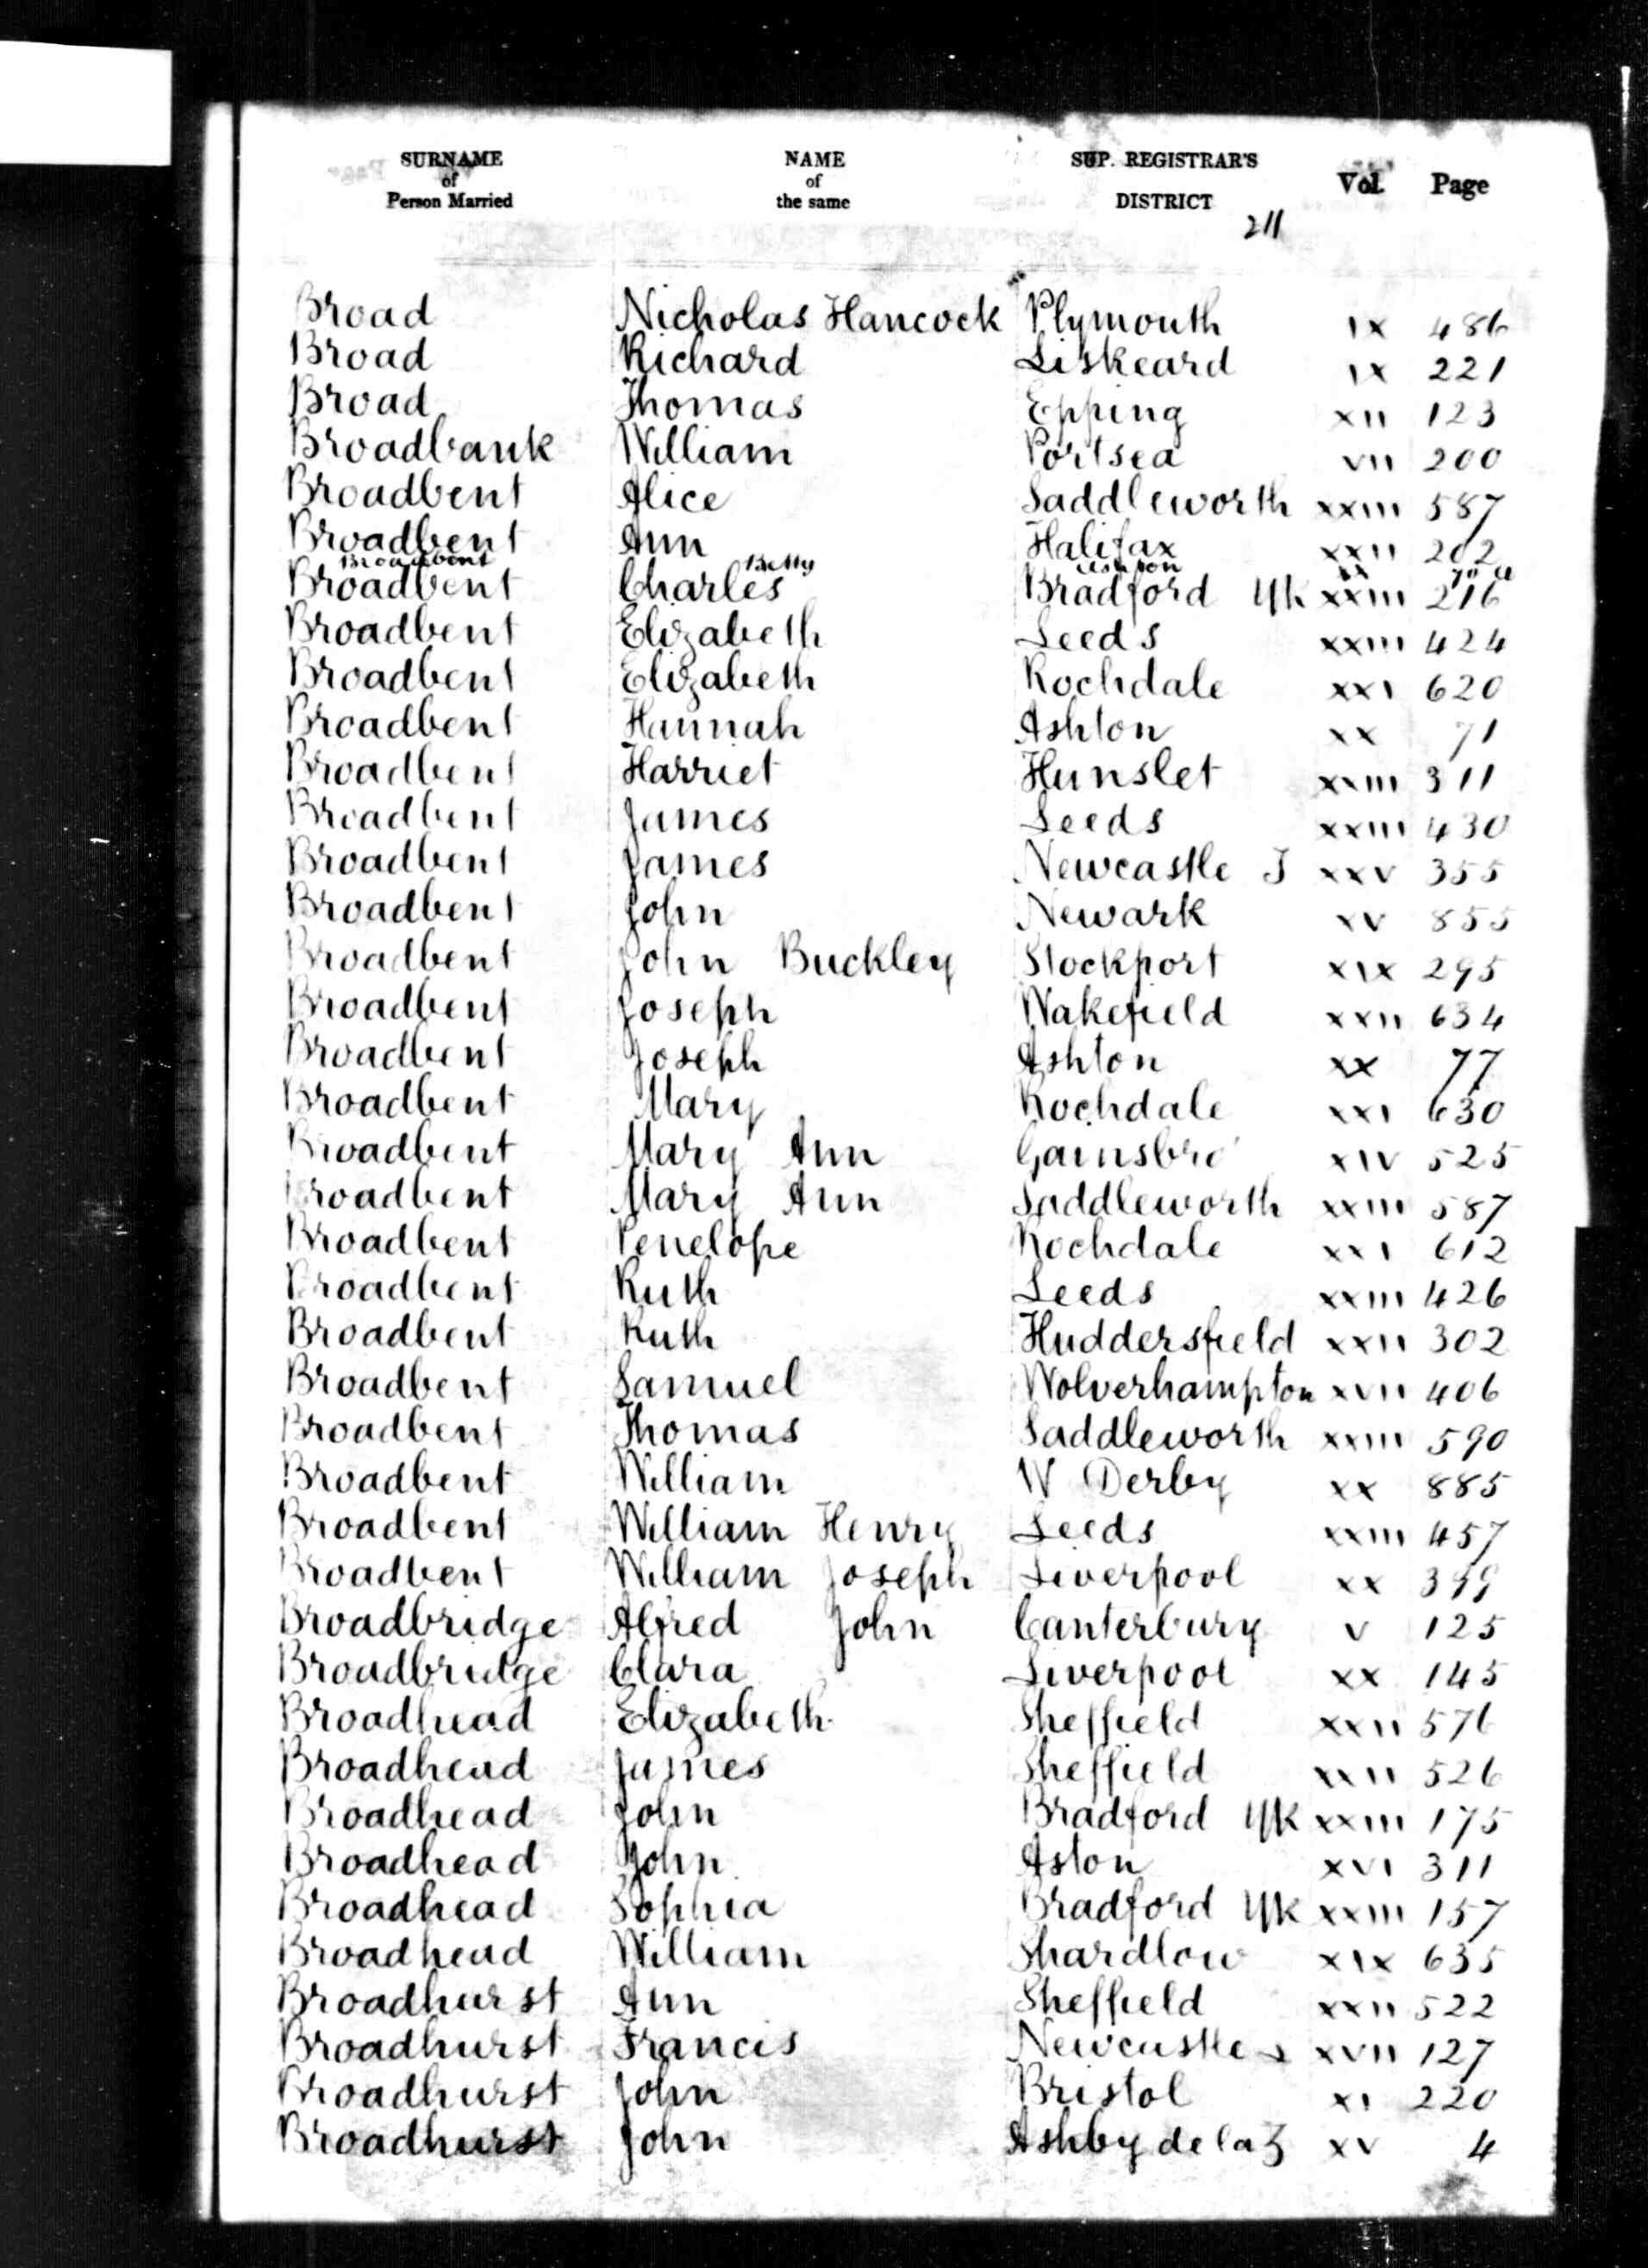 SURNAME of Person Married NAME of the same SUP. REGISTRAR'S DISTRICT Vol. Page
211
Broad Nicholas Hancock Plymouth IX 486
Broad Richard Liskeard IX 221
Broad Thomas Epping XII 123
Broadbank William Portsea VII 200
Broadbent Alice Saddleworth XXIII 587
Broadbent Ann Halifax XXII 202
Broadbent Betty Ashton XX
Broadbent Charles Bradford Yk XXIII 216
Broadbent Elizabeth Leeds XXIII 424
Broadbent Elizabeth Rochdale XXI 620
Broadbent Hannah Ashton XX 71
Broadbent Harriet Hunslet XXIII 311
Broadbent James Leeds XXIII 430
Broadbent James Newcastle T XXV 355
Broadbent John Newark XV 855
Broadbent John Buckley Stockport XIX 295
Broadbent Joseph Wakefield XXII 634
Broadbent Joseph Ashton XX 77
Broadbent Mary Rochdale XXI 630
Broadbent Mary Ann Gainsbro' XIV 525
Broadbent Mary Ann Saddleworth XXIII 587
Broadbent Penelope Rochdale XXI 612
Broadbent Ruth Leeds XXIII 426
Broadbent Ruth Huddersfield XXII 302
Broadbent Samuel Wolverhampton XVII 406
Broadbent Thomas Saddleworth XXIII 590
Broadbent William W Derby XX 885
Broadbent William Henry Leeds XXIII 457
Broadbent William Joseph Liverpool XX
Broadbridge Alfred John Canterbury V 125
Broadbridge Clara Liverpool XX 145
Broadhead Elizabeth Sheffield XXII 576
Broadhead James Sheffield XXII 526
Broadhead John Bradford Yk XXIII 175
Broadhead John Aston XVI 311
Broadhead Sophia Bradford Yk XXIII 157
Broadhead William Shardlow XIX 635
Broadhurst Ann Sheffield XXII 522
Broadhurst Francis Newcastle XVII 127
Broadhurst John Bristol XI 220
Broadhurst John Ashby de la Z XV 4